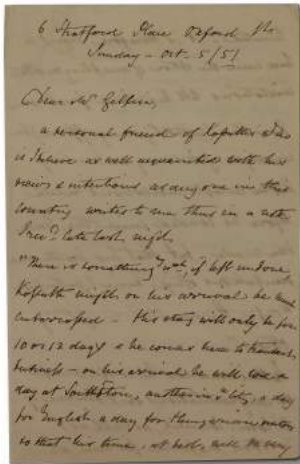 6 Stratford Place Oxford St.
Sunday - Oct. 5/51
Dear Mr Gilpin,
a personal friend of Kossuth & who
is I believe as well acquainted with his
views & intentions as any one in this
country writes to me thus in a note
I recd. late last night.
"There is something wh. if left undone
Kossuth might on his arrival be
embarrassed - His stay will only be for
10 or 12 days & he comes here to transact
business - on his arrival he will lose a
day at Southton, another in ye city, a day
for English a day for
so that his time, at best, will be very